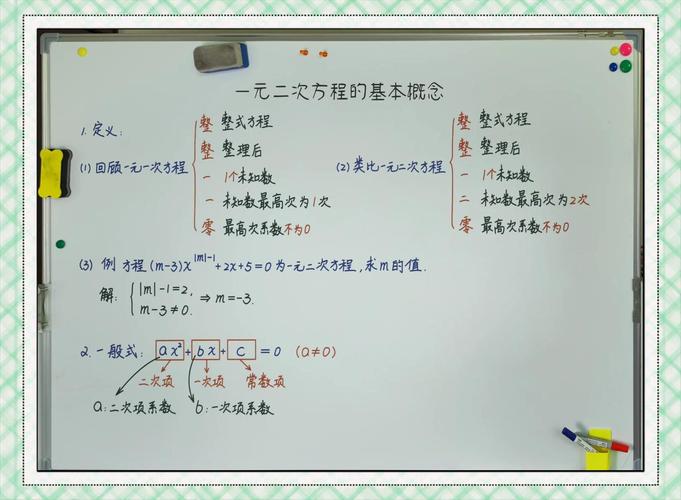 一元二次方程的基本概念
1. 定义:
(1) 回顾一元一次方程
整 整式方程
整 整理后
一 1个未知数
一 未知数最高次为1次
零 最高次系数不为0
(2) 类比一元二次方程
整 整式方程
整 整理后
一 1个未知数
二 未知数最高次为2次
零 最高次系数不为0
(3) 例 方程(m-3)x^|m|-1+2x+5=0为一元二次方程,求m的值.
解: { |m|-1=2, ⇒ m=-3.
m-3≠0.
2. 一般式: ax²+bx+c=0 (a≠0)
二次项 一次项 常数项
a:二次项系数 b:一次项系数